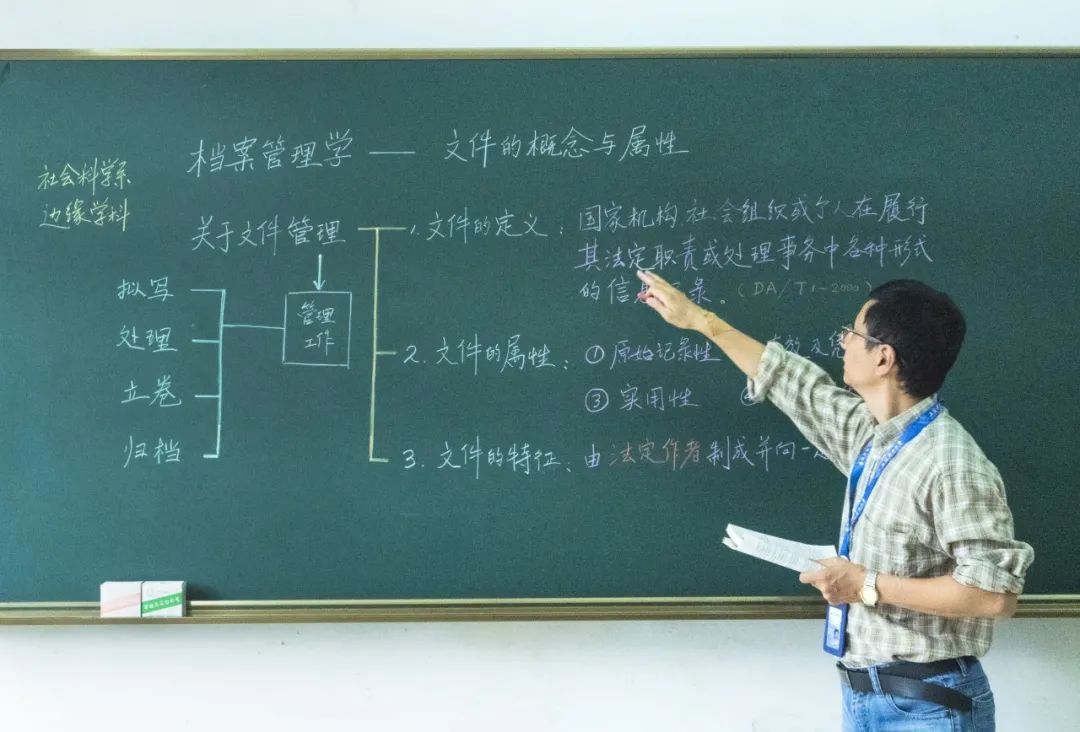 档案管理学 — 文件的概念与属性
社会科学系
边缘学科
关于文件管理
1.文件的定义：国家机构、社会组织或个人在履行
其法定职责或处理事务中各种形式
的信 录。（DA/T1-2000）
管理
工作
拟写
处理
立卷
归档
2.文件的属性：①原始记录性
③实用性
3.文件的特征：由法定作者制成并向一